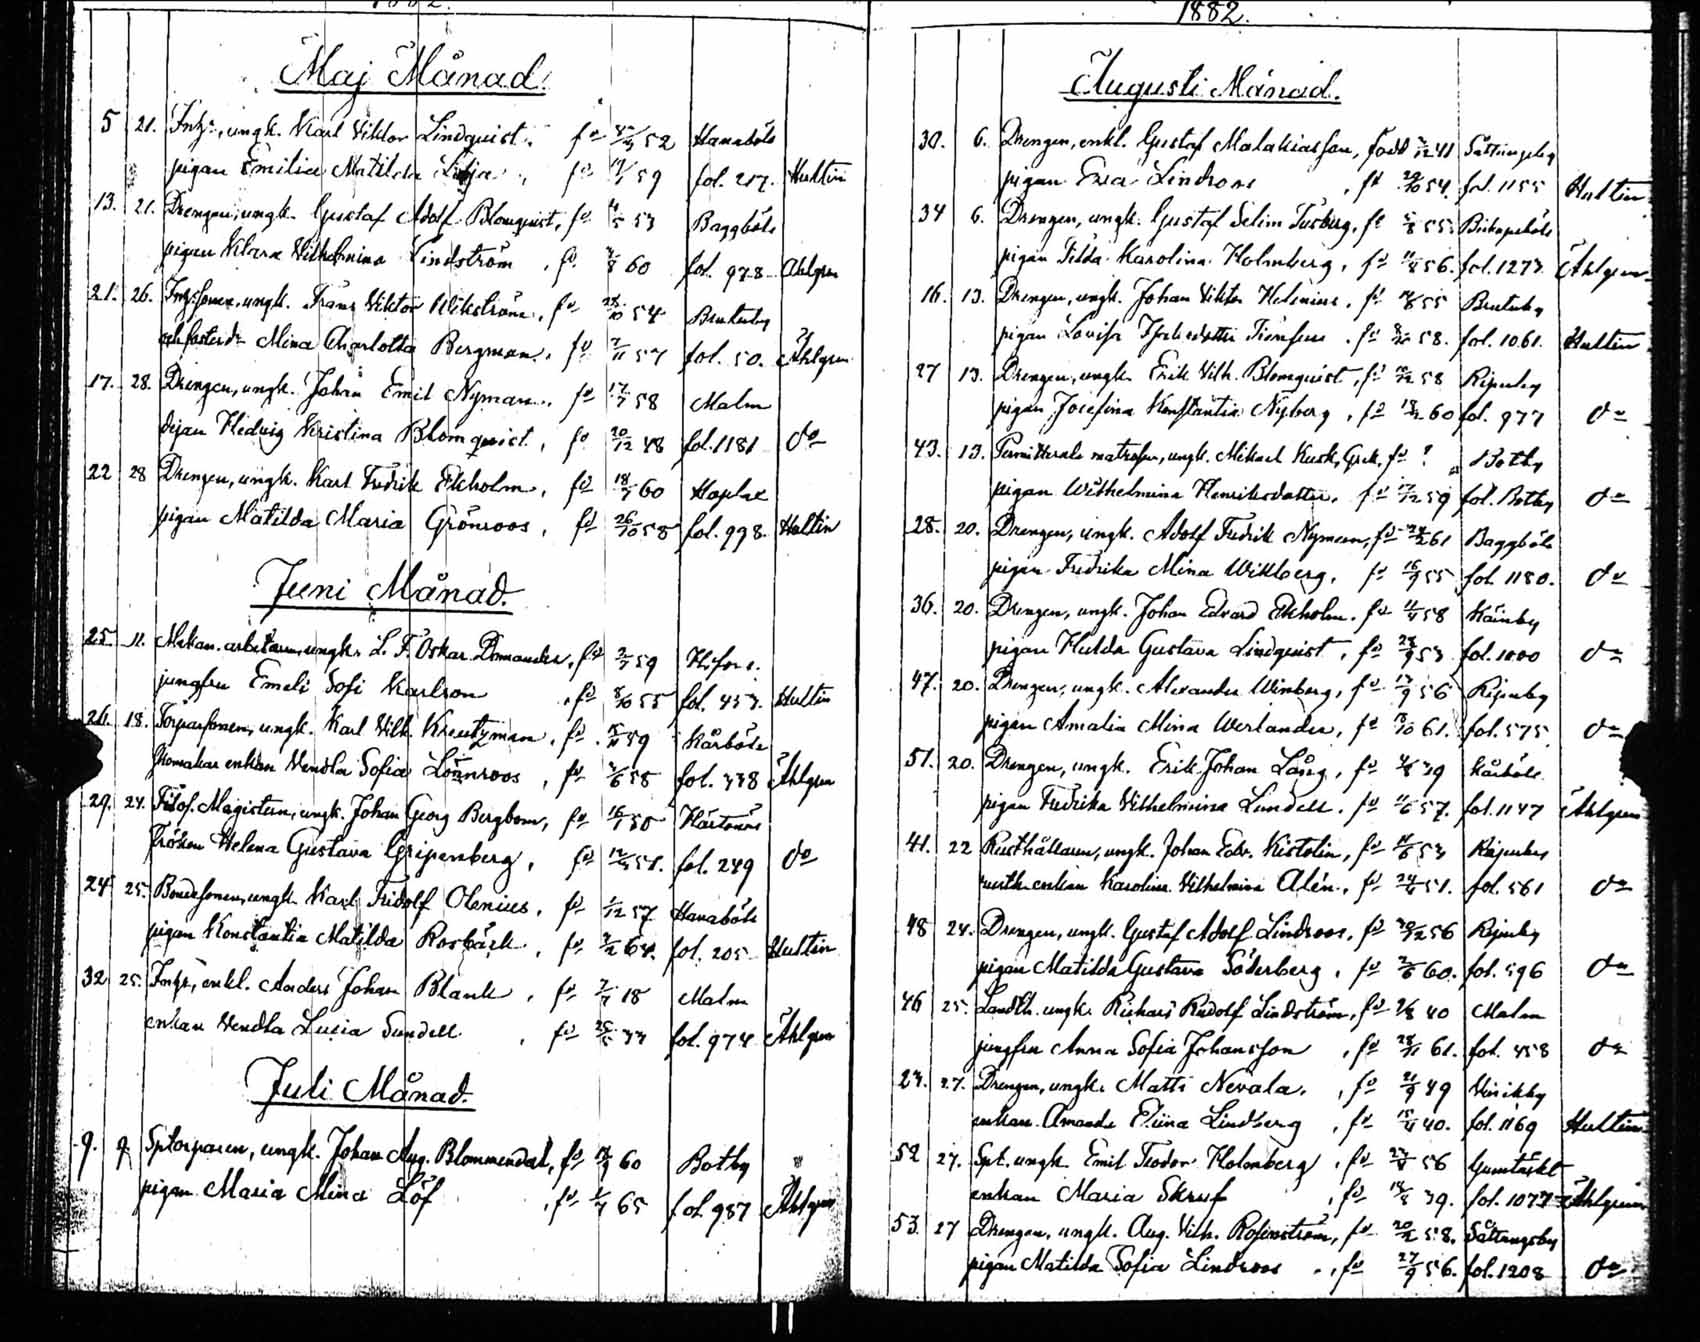 1882.
Maj Månad.
5 21. Inhs., ungk. Karl Viktor Lindquist, fd 52 Hanaböle
pigan Emilia Matilda Lilja, fd 59 fol. 217. Hultin
13. 21. Drengen, ungk. Gustaf Adolf Blomquist, fd 53 Baggböle
pigan Klara Vilhelmina Lindström, fd 60 fol. 978. Åhlgren
21. 26. Inhs.sonen, ungk. Frans Viktor Wikström, fd 54 Brutuby
Mina Charlotta Bergman, fd 57 fol. 50. Åhlgren
17. 28. Drengen, ungk. Johan Emil Nyman, fd 17/7 58 Malm
Hedvig Kristina Blomquist, fd 20/12 48 fol. 1181 do
22 28 Drengen, ungk. Karl Fredrik Ekholm, fd 18/7 60 Hoplax
pigan Matilda Maria Grönroos, fd 26/10 58 fol. 998. Hultin
Juni Månad.
25 11. Mekan. arbetaren, ungk. L. F. Oskar fd 59 H.fors.
jungfru Emeli Sofi Karlson, fd 8/10 55 fol. 453. Hultin
26. 18. Torparsonen, ungk. Karl Vilh. Kreutzman, fd 59 Kårböle
enkan Vendla Sofia Lönnroos, fd 58 fol. 338 Åhlgren
29. 24. Filos. Magistern, ungk. Johan Georg Bergbom, fd Hårtonäs
Fröken Helena Gustava Gripenberg, fd 51. fol. 249 do
24 25. Bondesonen, ungk. Karl Fridolf Olenius, fd 1/12 57 Hanaböle
pigan Konstantia Matilda Rosbäck, fd 64. fol. 205 Hultin
32 25. Inhs., enkl. Anders Johan Blank, fd 18 Malm
enkan Vendla Lucia Sundell, fd 33 fol. 974 Åhlgren
Juli Månad.
9. 9. Sptorparen, ungk. Johan Aug. Blommendal, fd 60 Botby
pigan Maria Mina Löf, fd 65 fol. 987 Åhlgren
1882.
Augusti Månad.
30. 6. Drengen, enkl. Gustaf Malakiasson, född 41 Sottungsby
pigan Eva Lindroos, fd 54. fol. 1155 Hultin
34 6. Drengen, ungk. Gustaf Selim Tusberg, fd 55 Biskopsböle
pigan Tilda Karolina Holmberg, fd 56. fol. 1273. Åhlgren
16. 13. Drengen, ungk. Johan Viktor Helenius, fd 55 Brutuby
pigan Lovisa fd 58. fol. 1061. Hultin
27 13. Drengen, ungk. Erik Vilh. Blomquist, fd 58 Ripuby
pigan Josefina Konstantia Nyberg, fd 60 fol. 977 do
43. 13. Permitterade matrosen, ungk. Mikael Kusk, Grek, fd ? Botby
pigan Wilhelmina Henriksdotter, fd 59 fol. Botby do
28. 20. Drengen, ungk. Adolf Fredrik Nyman, fd 61 Baggböle
pigan Fredrika Mina Wikberg, fd 55 fol. 1180. do
36. 20. Drengen, ungk. Johan Edvard Ekholm, fd 58 Käinby
pigan Hulda Gustava Lindquist, fd 53 fol. 1000 do
47. 20. Drengen, ungk. Alexander Winberg, fd 56 Ripuby
pigan Amalia Mina Werlander, fd 61. fol. 575 do
51. 20. Drengen, ungk. Erik Johan Lång, fd 39 Kårböle
pigan Fredrika Vilhelmina Lundell, fd 57. fol. 1147 Åhlgren
41. 22 Rusthållaren, ungk. Johan Edv. Kistolin, fd 53 Ripuby
rusth. enkan Karolina Vilhelmina Alén, fd 51. fol. 561 do
48 24. Drengen, ungk. Gustaf Adolf Lindroos, fd 56 Ripuby
pigan Matilda Gustava Söderberg, fd 60. fol. 596 do
46 25. ungk. Rikhard Rudolf Lindström, fd 40 Malm
jungfru Anna Sofia Johansson, fd 28/11 61. fol. 458 do
23. 27. Drengen, ungk. Matts Nevala, fd 21/9 49 Vinikby
enkan Amanda Elina Lindberg, fd 40. fol. 1169 Hultin
52 27. Spt. ungk. Emil Teodor Holmberg, fd 56 Gumtäkt
enkan Maria Skruf, fd 39. fol. 1077 Åhlgren
53. 27 Drengen, ungk. Aug. Vilh. Rosenström, fd 58. Sottungsby
pigan Matilda Sofia Lindroos, fd 27/9 56. fol. 1208 do